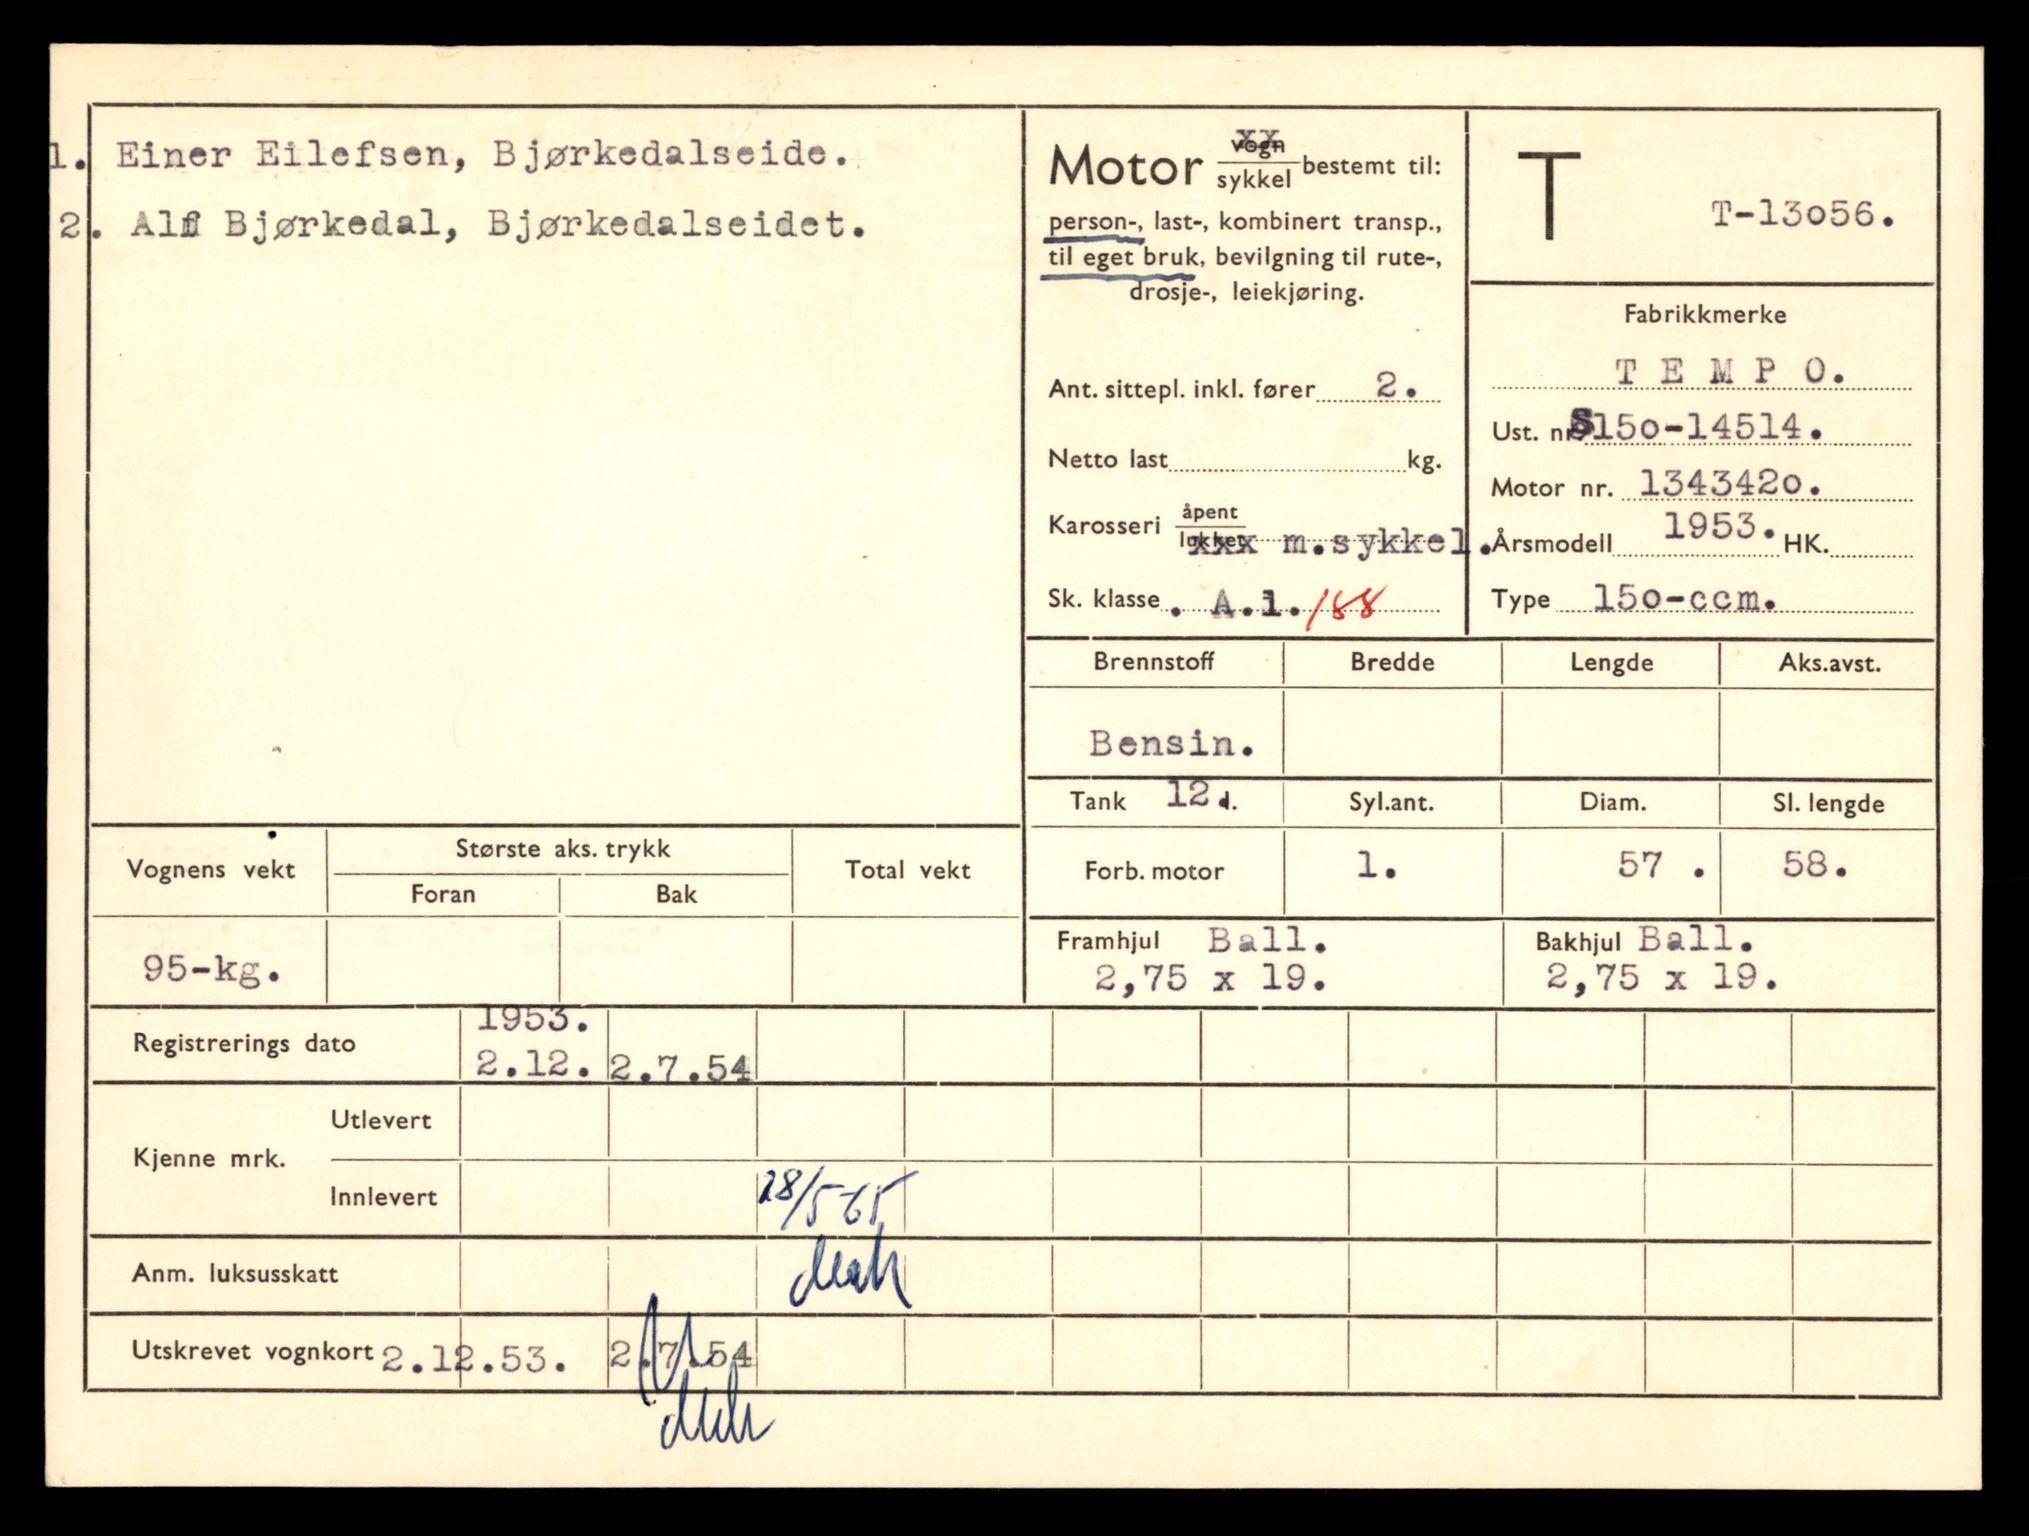 1. Einer Eilefsen, Bjørkedalseide.
2. Alf Bjørkedal, Bjørkedalseidet.
Motor vogn/sykkel bestemt til:
person-, last-, kombinert transp.,
til eget bruk, bevilgning til rute-,
drosje-, leiekjøring.
Ant. sittepl. inkl. fører 2.
Netto last kg.
Karosseri åpent/lukket xxx m.sykkel.
Sk. klasse . A.1. 188
T T-13056.
Fabrikkmerke
T E M P O.
Ust. nr. S150-14514.
Motor nr. 1343420.
Årsmodell 1953. HK.
Type 150-ccm.
Brennstoff Bredde Lengde Aks.avst.
Bensin.
Tank 12 l. Syl.ant. Diam. Sl. lengde
Forb. motor 1. 57 . 58.
Framhjul Ball. Bakhjul Ball.
2,75 x 19. 2,75 x 19.
Vognens vekt Største aks. trykk Total vekt
Foran Bak
95-kg.
1953.
Registrerings dato 2.12. 2.7.54
Kjenne mrk. Utlevert
Innlevert 28/5-65
Anm. luksusskatt
Utskrevet vognkort 2.12.53. 2.7.54